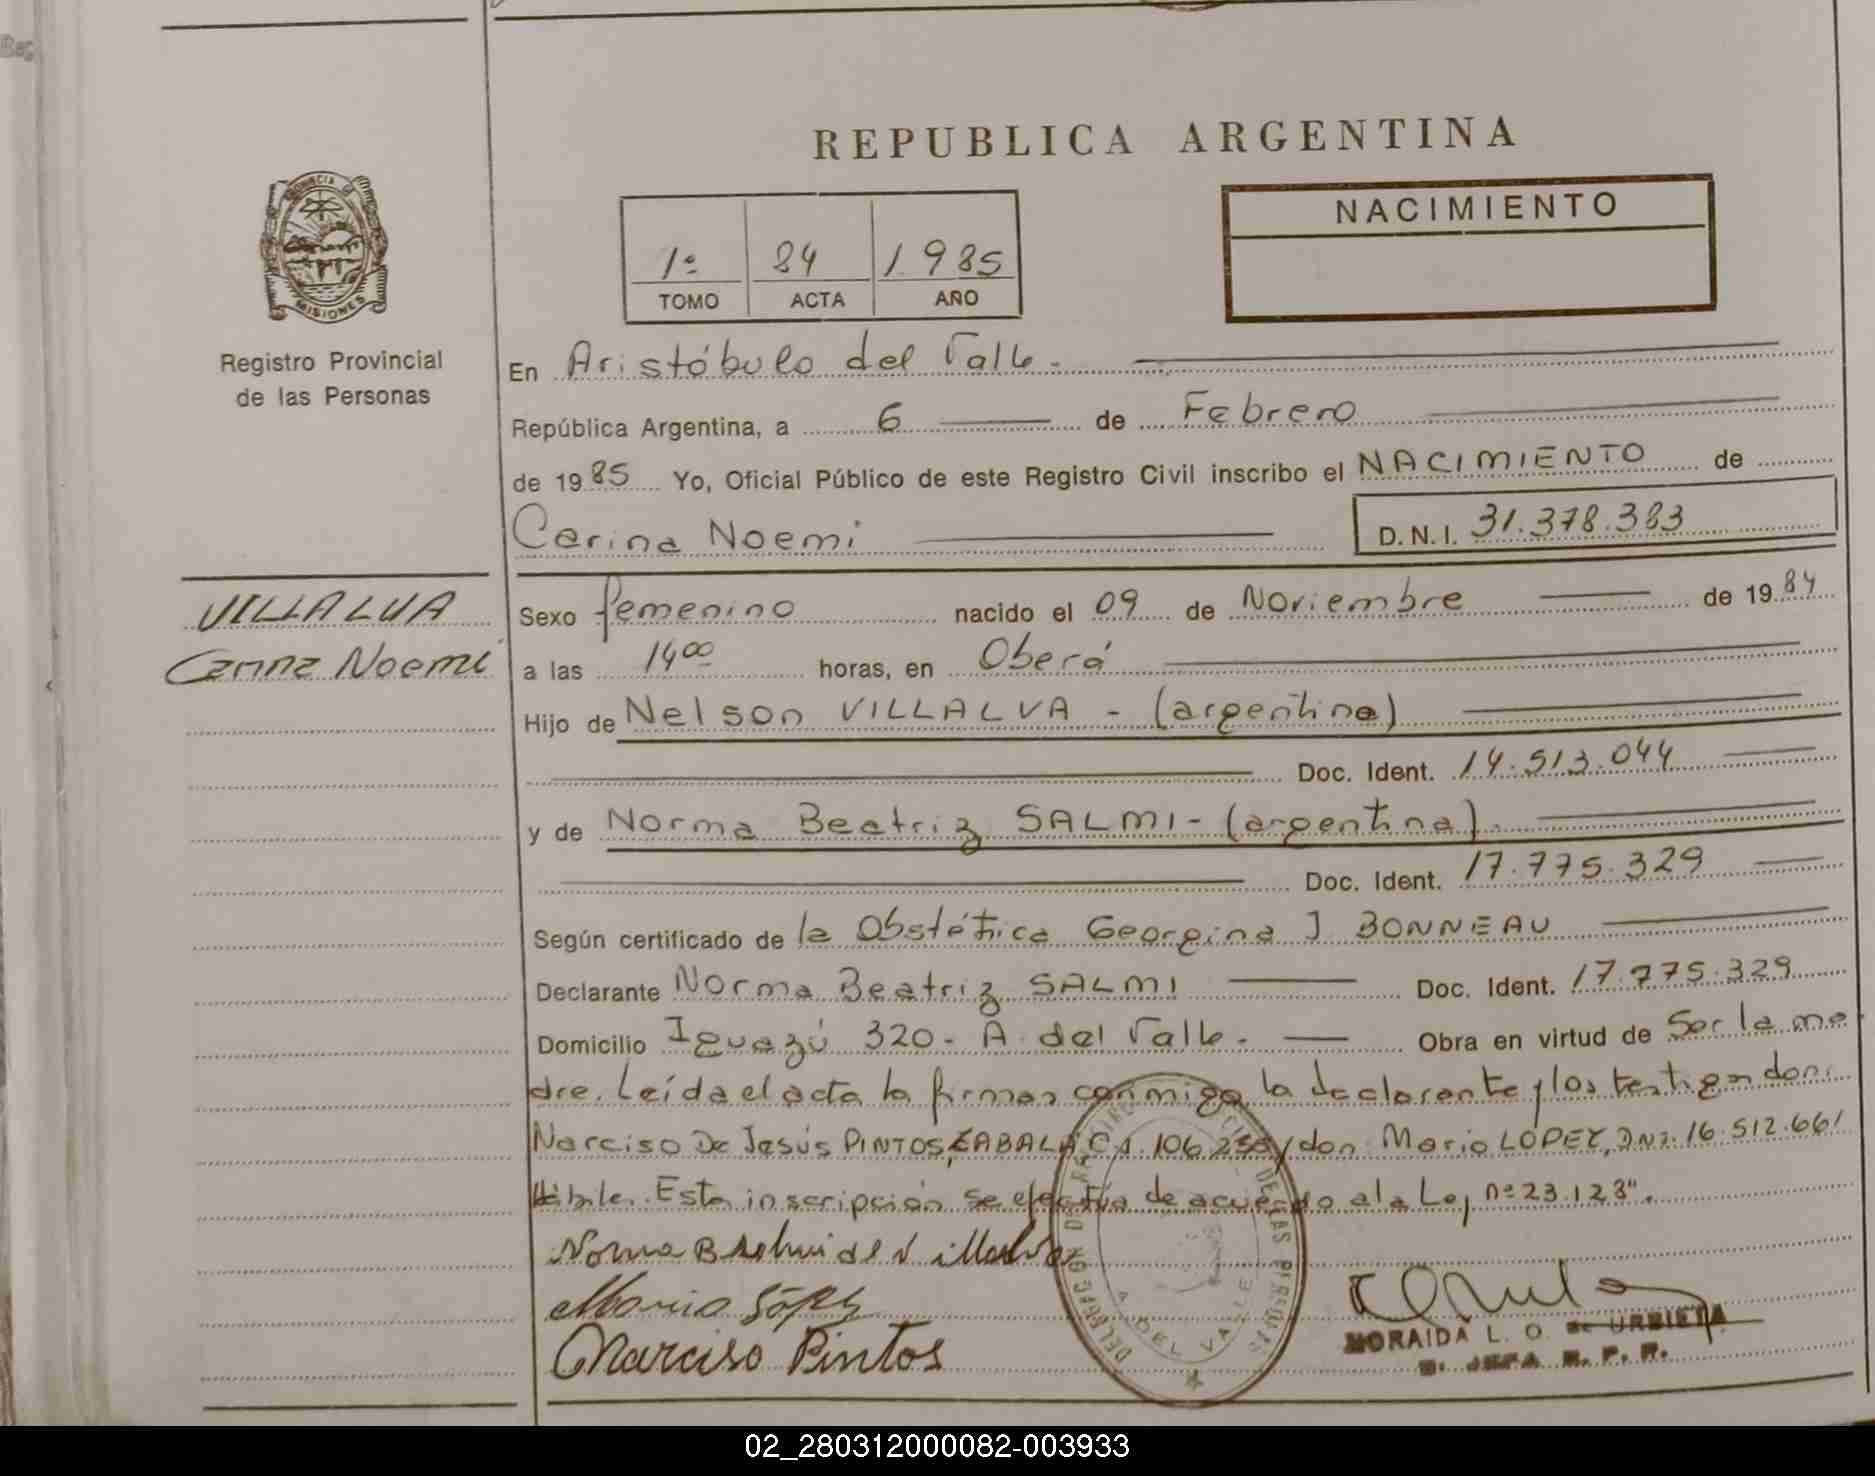 REPUBLICA ARGENTINA
PROVINCIA DE
MISIONES
Registro Provincial
de las Personas
1º 84 1.985
TOMO ACTA AÑO
NACIMIENTO
En Aristóbulo del Valle.
República Argentina, a 6 de Febrero
de 1985 Yo, Oficial Público de este Registro Civil inscribo el NACIMIENTO de
Carina Noemi D.N.I. 31.378.383
VILLALVA
Carina Noemi
Sexo femenino nacido el 09 de Noviembre de 1984
a las 14⁰⁰ horas, en Oberá
Hijo de Nelson VILLALVA - (argentino)
Doc. Ident. 14.513.044
y de Norma Beatriz SALMI - (argentina).
Doc. Ident. 17.775.329
Según certificado de la Obstétrica Georgina J BONNEAU
Declarante Norma Beatriz SALMI Doc. Ident. 17.775.329
Domicilio Iguazú 320 - A. del Valle. Obra en virtud de Ser la ma
dre. Leída el acta la firman conmigo la declarante y los testigos don:
Narciso De Jesús PINTOS ZABALA, C.I. 106 y don Mario LOPEZ, DNI. 16.512.661
Hábiles. Esta inscripción se efectúa de acuerdo a la Ley nº 23.128".
Norma B de Villalva
Mario López
Narciso Pintos
A. DEL VALLE
NORAIDA L. O. de URBIETA
JEFA R. P. P.
02_280312000082-003933